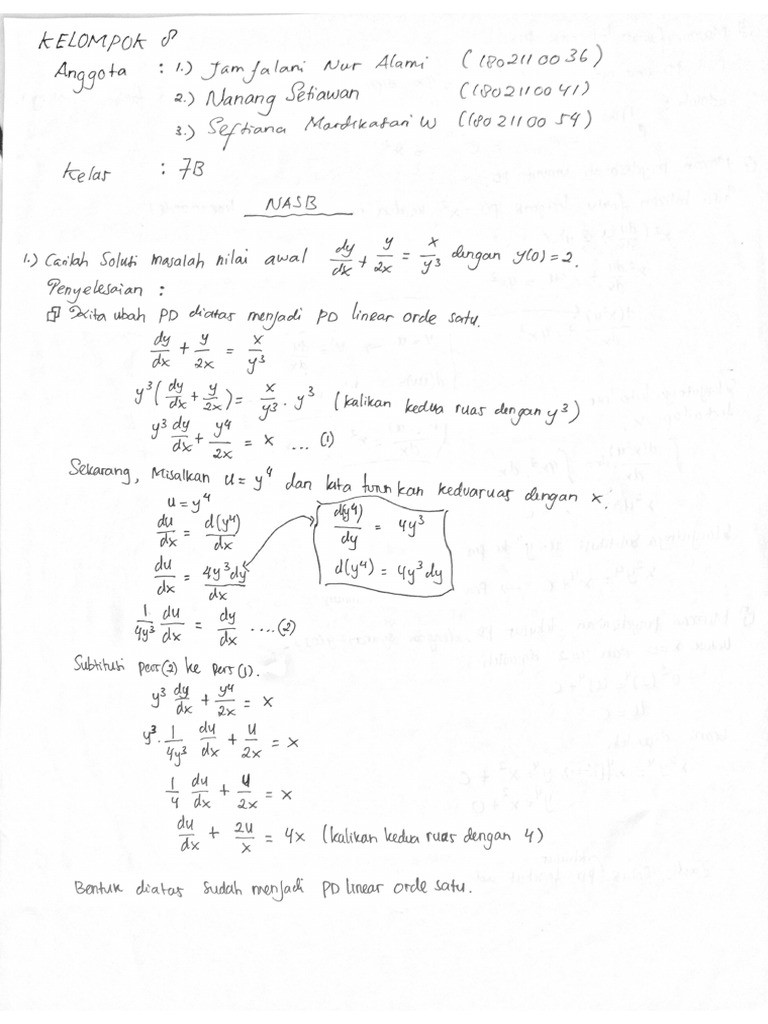 KELOMPOK 8
Anggota : 1.) Jamjalani Nur Alami (1802110036)
2.) Nanang Setiawan (1802110041)
3.) Seftiana Mardikasari W (1802110054)
Kelas : 7B
NASB
1.) Carilah Solusi masalah nilai awal dy/dx + y/2x = x/y³ dengan y(0) = 2.
Penyelesaian :
Kita ubah PD diatas menjadi PD linear orde satu.
dy/dx + y/2x = x/y³
y³(dy/dx + y/2x) = x/y³ . y³ (kalikan kedua ruas dengan y³)
y³ dy/dx + y⁴/2x = x ... (1)
Sekarang, Misalkan u = y⁴ dan kita turunkan keduaruas dengan x.
u = y⁴
du/dx = d(y⁴)/dx
d(y⁴)/dy = 4y³
du/dx = 4y³dy/dx
d(y⁴) = 4y³ dy
1/4y³ du/dx = dy/dx ....(2)
Subtitusi pers(2) ke pers(1).
y³ dy/dx + y⁴/2x = x
y³ . 1/4y³ du/dx + u/2x = x
1/4 du/dx + u/2x = x
du/dx + 2u/x = 4x (kalikan kedua ruas dengan 4)
Bentuk diatas sudah menjadi PD linear orde satu.